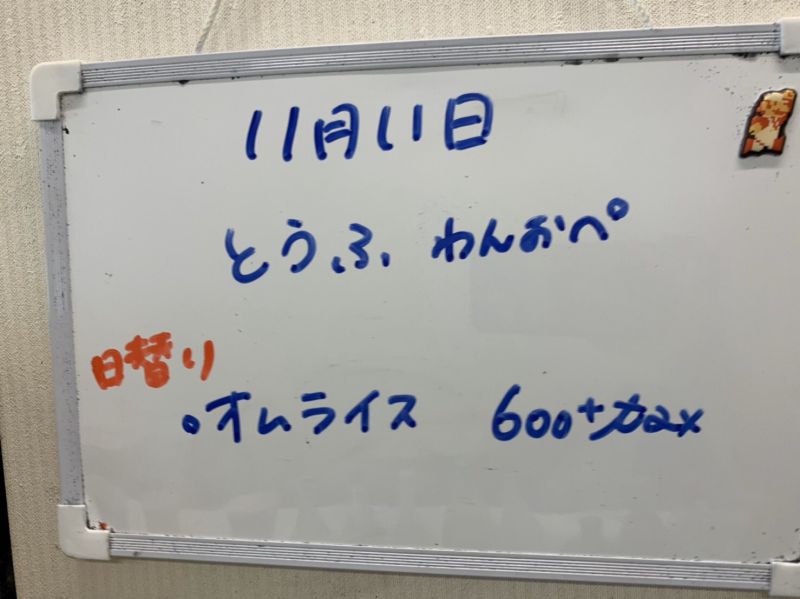 11月11日
とうふ わんおぺ
日替り
。オムライス 600+tax